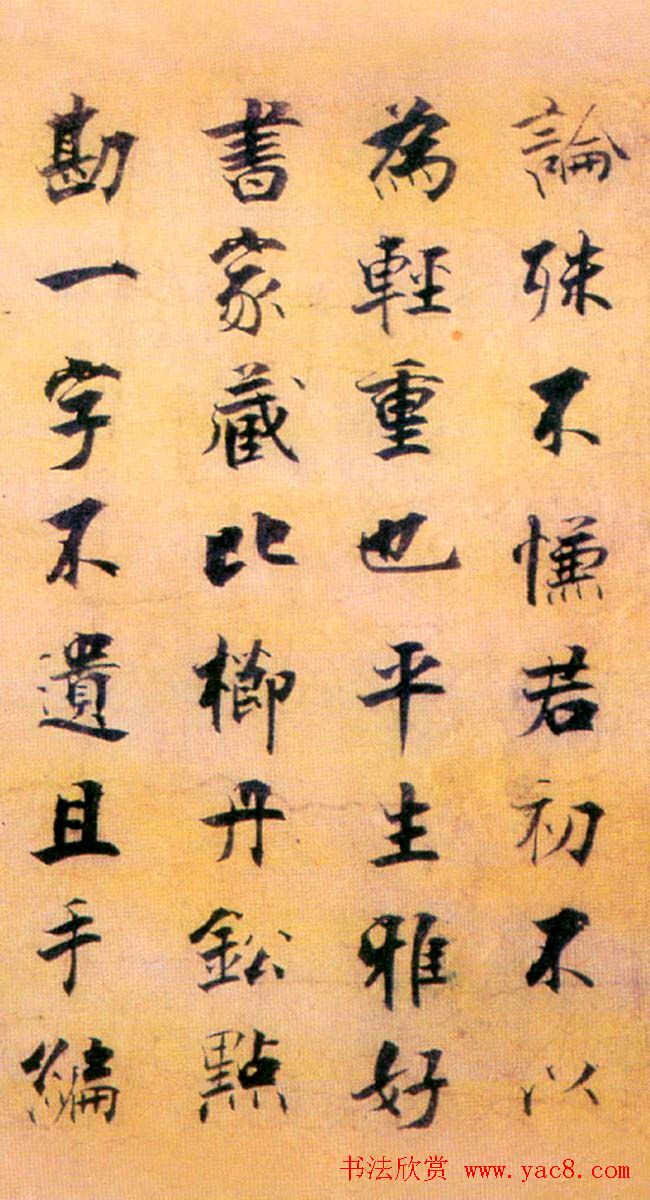 論殊不慊若初不以
為輕重也平生雅好
書家藏比櫛丹鈆點
勘一字不遺且手編
书法欣赏 www.yac8.com